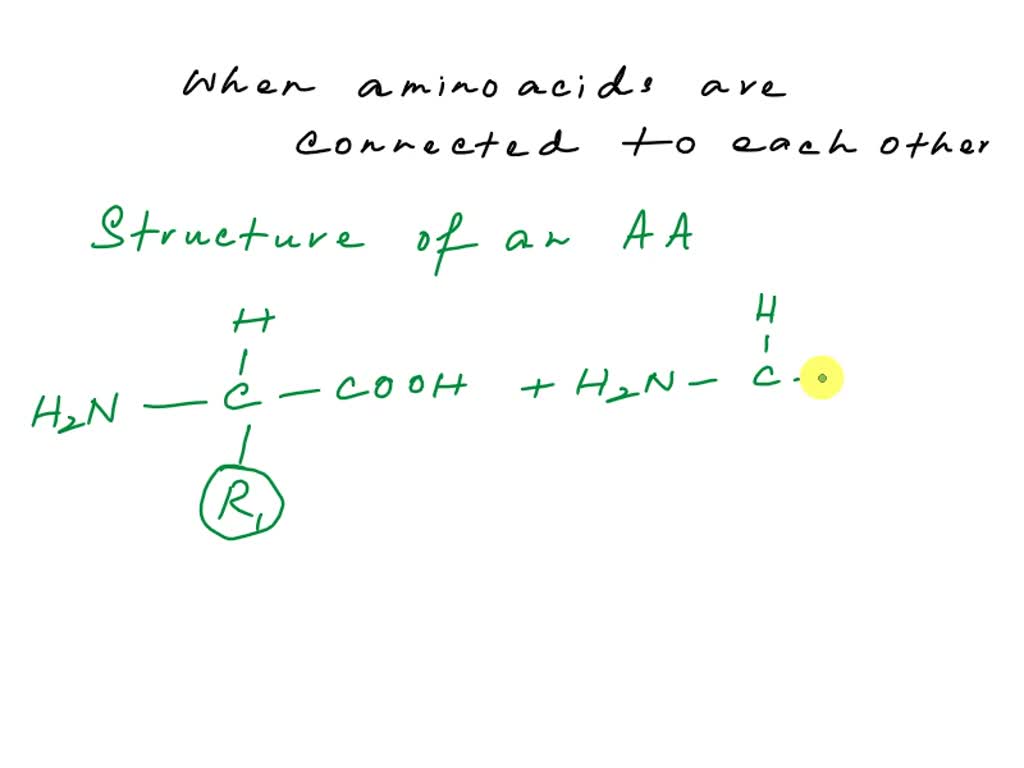 When amino acids are
connected to each other
Structure of an AA
H H
H₂N — C — COOH + H₂N — C -
R₁